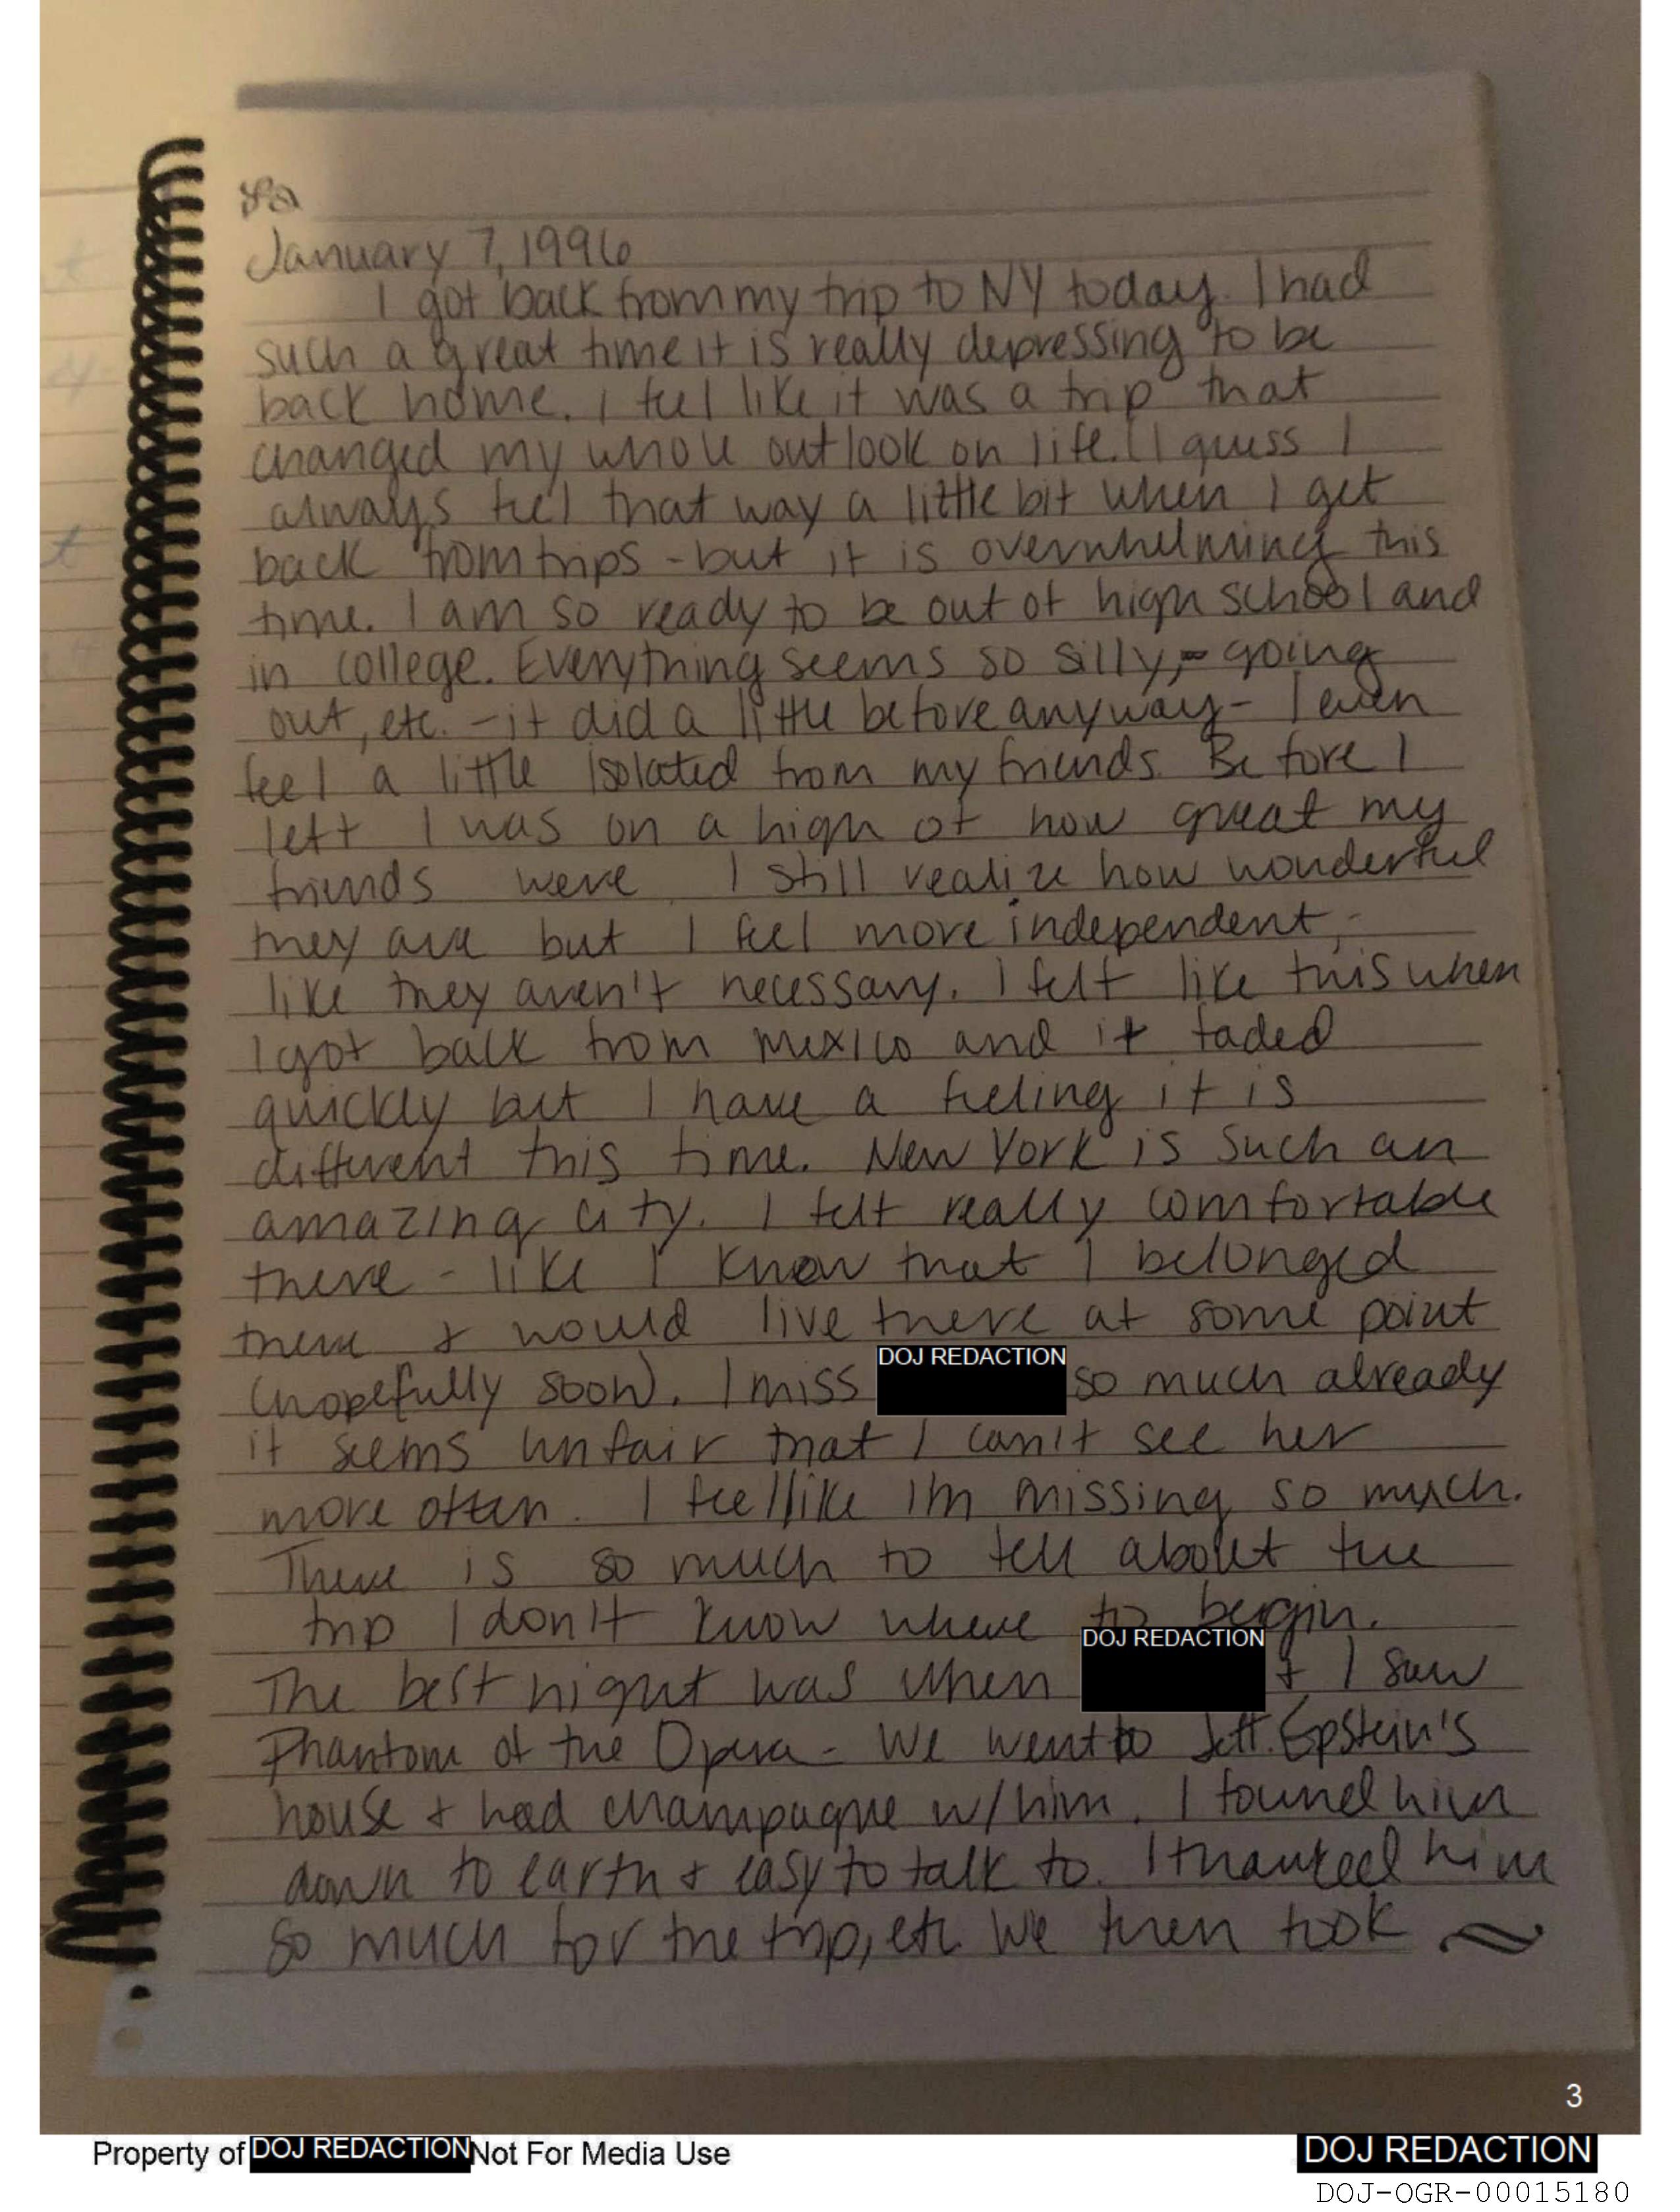 January 7, 1996
I got back from my trip to NY today. I had
such a great time it is really depressing to be
back home. I feel like it was a trip that
changed my whole outlook on life. (I guess I
always feel that way a little bit when I get
back from trips - but it is overwhelming this
time. I am so ready to be out of high school and
in college. Everything seems so silly, - going
out, etc. - it did a little before anyway - I even
feel a little isolated from my friends. Before I
left I was on a high of how great my
friends were. I still realize how wonderful
they are but I feel more independent, -
like they aren't necessary. I felt like this when
I got back from Mexico and it faded
quickly but I have a feeling it is
different this time. New York is such an
amazing city. I felt really comfortable
there - like I know that I belonged
there & would live there at some point
(hopefully soon). I miss DOJ REDACTION so much already
it seems unfair that I can't see her
more often. I feel like I'm missing so much.
There is so much to tell about the
trip I don't know where to begin.
The best night was when DOJ REDACTION & I saw
Phantom of the Opera - We went to Jeff. Epstein's
house & had champagne w/ him. I found him
down to earth & easy to talk to. I thanked him
so much for the trip, etc. We then took ~
3
Property of DOJ REDACTION Not For Media Use
DOJ REDACTION
DOJ-OGR-00015180